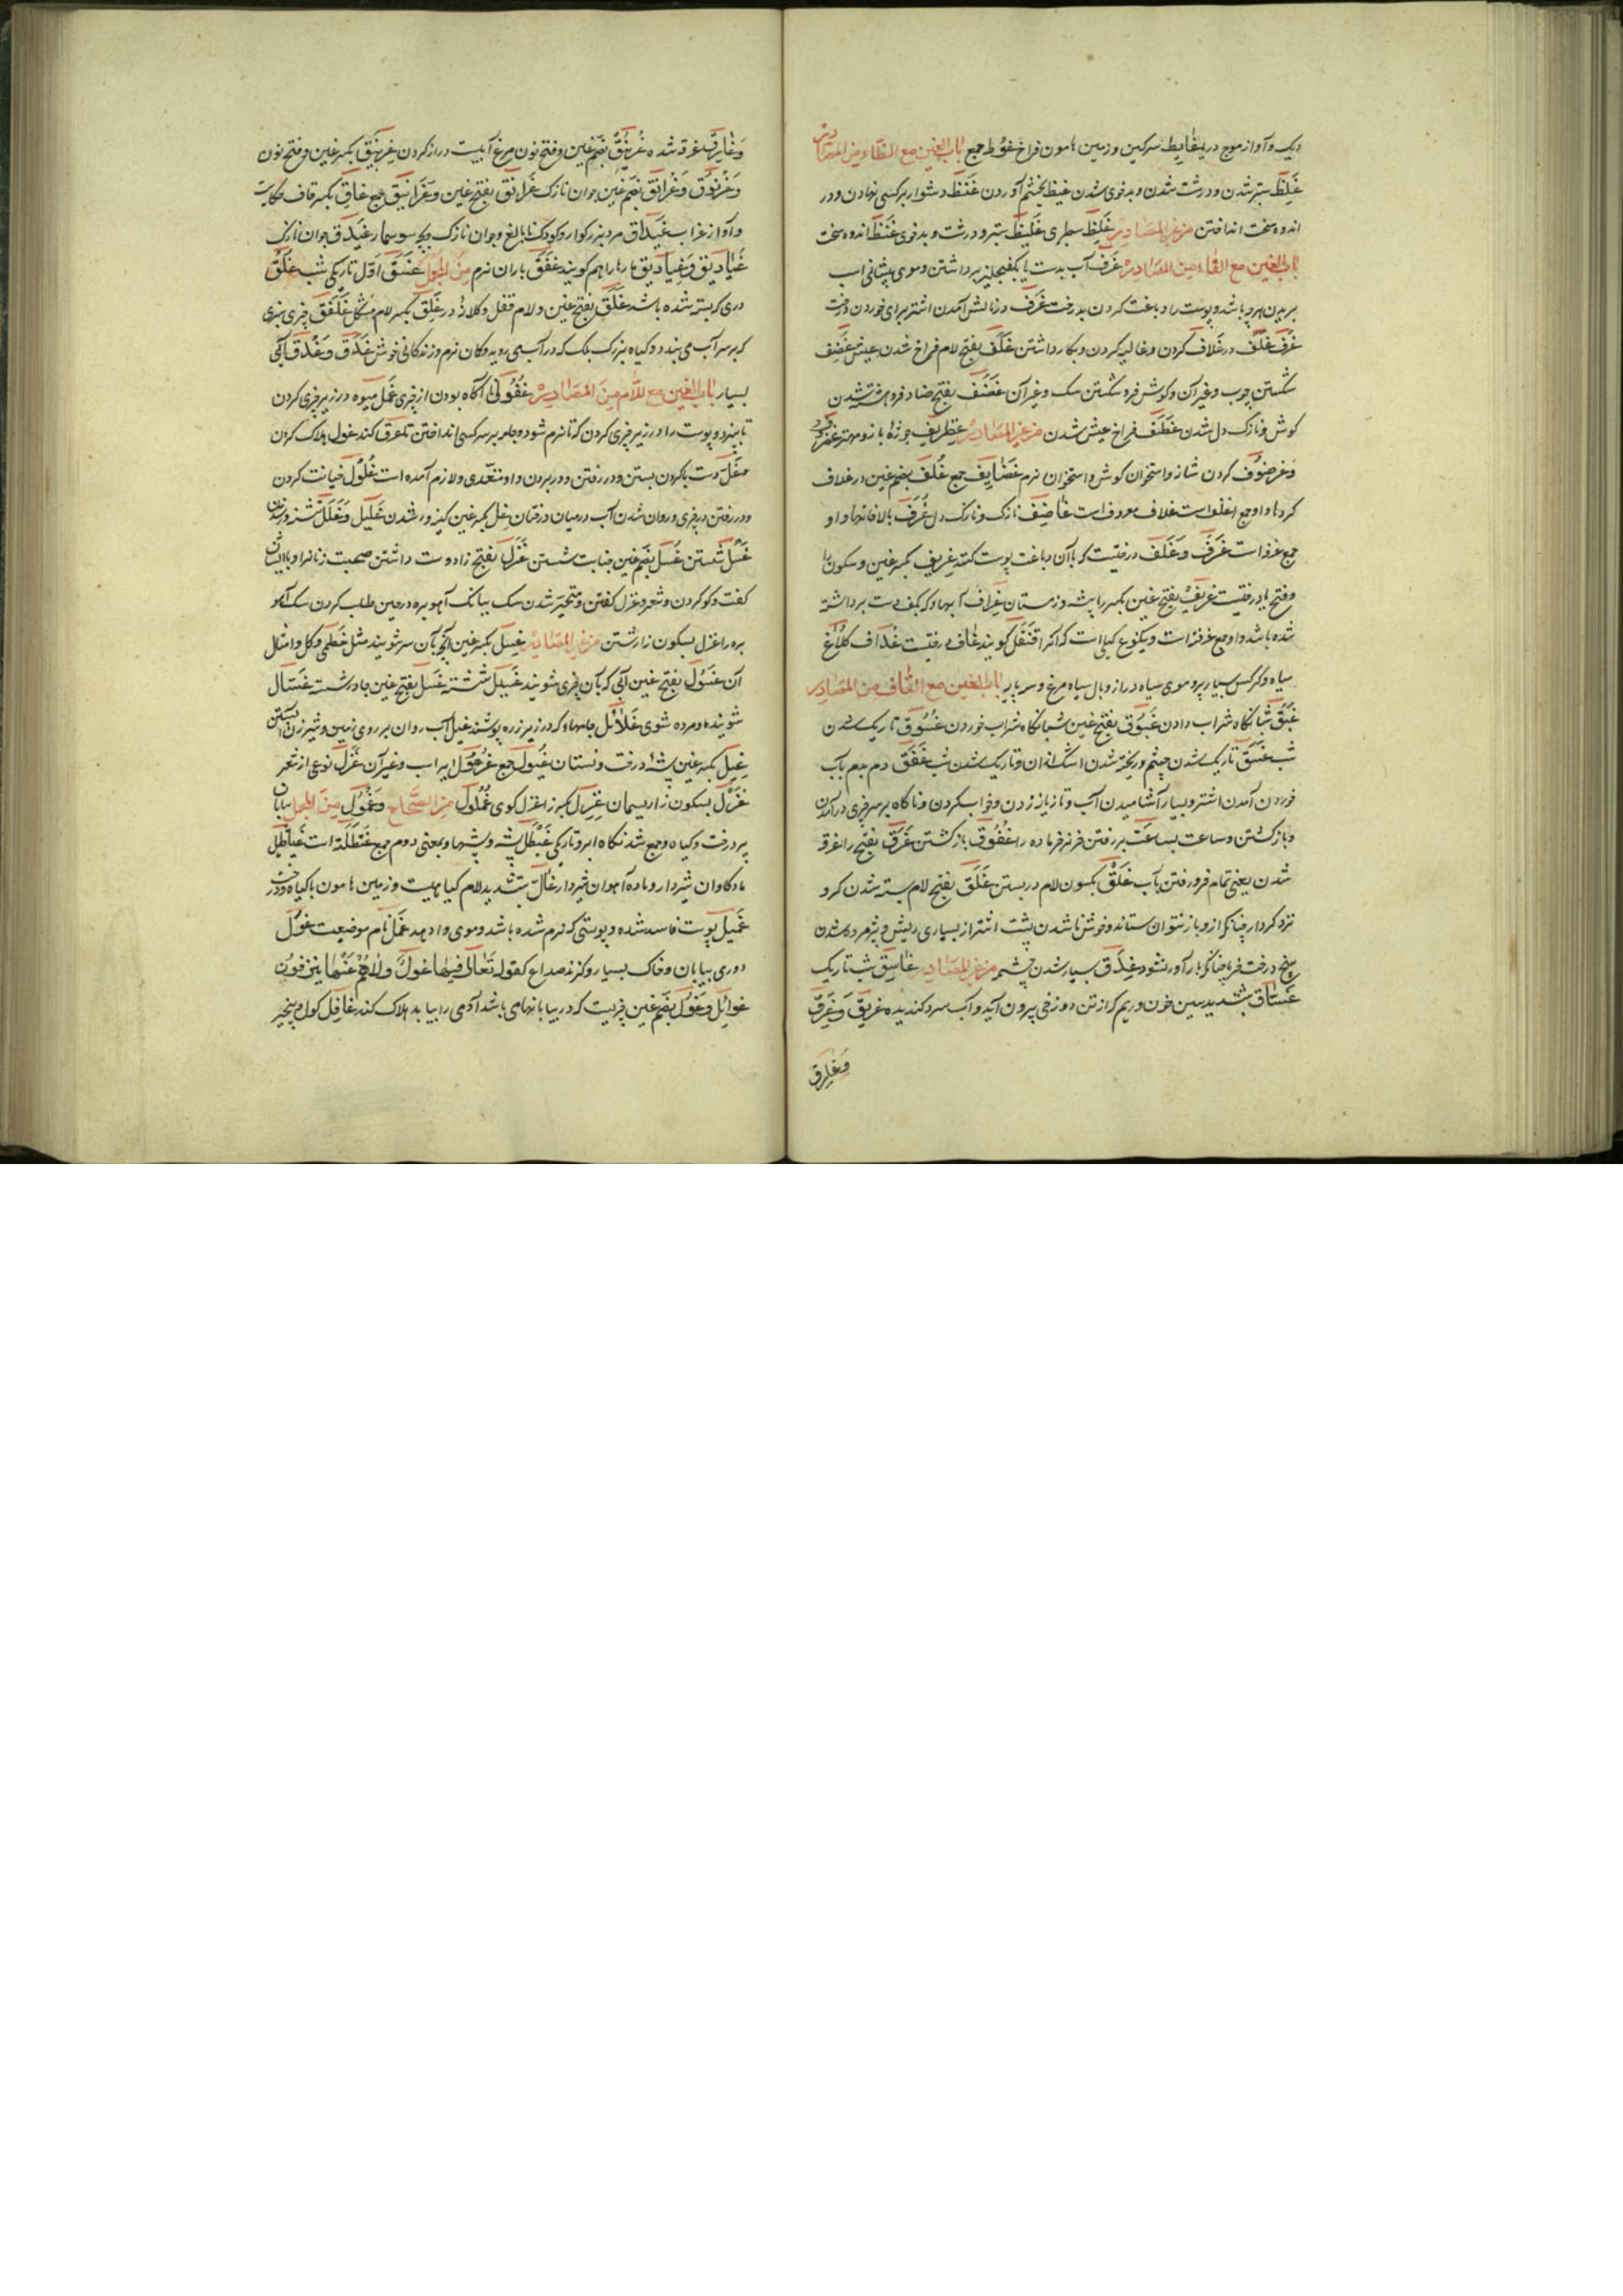 دیک و آواز موج دریا غایط سرکین و زمین هامون فراخ غوط جمع باب الغین مع الظاء من المصادر
غلظ ستبر شدن و درشت شدن و بدخوی شدن غیظ بخشم آوردن غنظ دشوار بر کسی نهادن و در
اندوه سخت انداختن من غیر المصادر غلظ سطبری غلیظ ستبر و درشت و بدخوی غنظ اندوه سخت
باب الغین مع الفاء من المصادر غرف آب بدست یا بکفچلیز برداشتن و موی پیشانی اسب
بریدن هرچه باشد و پوست را دباغت کردن بدرخت غرف در نالش آمدن اشتر برای خوردن درخت
غرف غلف در غلاف کردن و غالیه کردن و بکار داشتن غلف بفتح لام فراخ شدن عیش غضف
شکستن چوب و غیر آن و کوش فرو شکستن سک و غیر آن غضف بفتح ضاد فروهشته شدن
کوش و نازک دل شدن غطف فراخ عیش شدن من غیر المصادر غطریف جوزه باز و مهتر
و غرضوف کردن شانه و استخوان کوش و استخوان نرم غضایف جمع غلف بضم غین در غلاف
کردها و او جمع اغلف است غلاف معروف است غاضف نازک و نازک دل غرف بالاخانها و او
جمع غرفه است غرف و غلف درختیست که با آن دباغت پوست کنند غریف بکسر غین و سکون را
و فتح یا درختیست غریف بفتح غین بکسر را بیشه و زمستان غراف آبها و که بکف دست برداشته
شده باشد و او جمع غرفه است و یکنوع کیلی است که آنرا قنقل کویند غاف درختیست غداف کلاغ
سیاه و کرکس بسیار پر و موی سیاه دراز و بال سیاه مرغ و سر پایه باب الغین مع القاف من المصادر
غبق شبانکاه شراب دادن غبوق بفتح غین شبانکاه شراب خوردن غسوق تاریک شدن
شب غسق تاریک شدن چشم و ریخته شدن اشک از آن و تاریک شدن شب غفق دم بدم بآب
خوردن آمدن اشتر و بسیار آشامیدن آب و تازیانه زدن و خواب کردن و ناکاه بر سر چیزی درآمدن
و بازکشتن و ساعت بساعت بر رفتن خر نر فرماده را غفوق بازکشتن غرق بفتح را غرقه
شدن یعنی تمام فرو رفتن بآب غلق بسکون لام در بستن غلق بفتح لام بسته شدن کرو
نزد کرودار چنانکه ازو باز نتوان ستاند و خوش ناشدن پشت اشتر از بسیاری ریش و پژمرده شدن
بیخ درخت خرما چنانکه بارآور نشود غدق بسیار شدن چشمه من غیر المصادر غاسق شب تاریک
غساق بتشدید سین خون و ریم که از تن دوزخی بیرون آید و آب سرد کندیده غریق و غرق
و غارق
و غاریق غرقه شده غرنیق بضم غین و فتح نون مرغ آبیست دراز کردن غرنیق بکسر غین و فتح نون
و غرنوق و غرانق بضم غین جوان نازک غرانق بفتح غین و غرانیق جمع غاق بکسر قاف حکایت
و آواز غراب غیداق مرد بزرکوار و کودک نابالغ و جوان نازک و بچه سوسمار غیدق جوان نازک
غیادیق و غیادیق مارها را هم کویند غفق باران نرم من المجمل غسق اول تاریکی شب غلق
دری که بسته شده باشد غلق بفتح غین و لام قفل و کلاژه در غلق بکسر لام مشکل غلفق چیزی سبزی
که بر سر آب می بندد و کیاه بزرک برک که در آب می روید و کان نرم و زندکانی خوش غدق و غدق آبی
بسیار باب الغین مع اللام من المصادر غفول ناآکاه بودن از چیزی غمل میوه در زیر چیزی کردن
تا بپزد و پوست را در زیر چیزی کردن که تا نرم شود و جامه بر سر کسی انداختن تا عرق کند غول هلاک کردن
غل دست با کردن بستن و در رفتن و در بردن و او متعدی و لازم آمده است غلول خیانت کردن
و در رفتن در چیزی و روان شدن آب در میان درختان غل بکسر غین کینه ور شدن غلیل و غلل تشنه شدن
غسل شستن غسل بضم غین جنابت شستن غزل بفتح زا دوست داشتن صحبت زنان را و با ایشان
کفت و کو کردن و شعر و غزل کفتن و متحیر شدن سک ببانک آهو بره در حین طلب کردن سک آهو
بره را غزل بسکون زا رشتن من غیر المصادر غسل بکسر غین آنچه بآن سر شویند مثل خطمی و کل و امثال
آن غسول بفتح غین آبی که بآن چیزی شویند غسیل شسته غسل بفتح غین جامه شسته غسال
شوینده و مرده شوی غلائل جامهاء که در زیر زره پوشند غیل آب روان بر روی زمین و شیر زن آبستن
غیل بکسر غین بیشهٔ درخت و نیستان غیول جمع غرمول ایر اسب و غیر آن غزل نوعی از شعر
غزل بسکون زا ریسمان غزل بکسر زا غزل کوی غملول من الصحاح و غول من المجمل بیابان
پر درخت و کیاه و جمع شدنکاه ابر و تاریکی غیطل بیشه و بیشها و بمعنی دوم جمع غیطلة است غیاطیل
ماده کاوان شیردار و ماده آهوان شیردار غال بتشدید لام کیاهیست و زمین هامون با کیاه و درخت
غمیل پوست فاسد شده و پوستی که نرم شده باشد و موی وا دهد غمل نام موضعیست غول
دوری بیابان و خاک بسیار و کزند صداع کقوله تعالی لا فیها غول ولا هم عنها ینزفون
غوائل و غول بضم غین چیزیست که در بیابانهای باشد آدمی را بیابد هلاک کند غافل کول و بیخبر